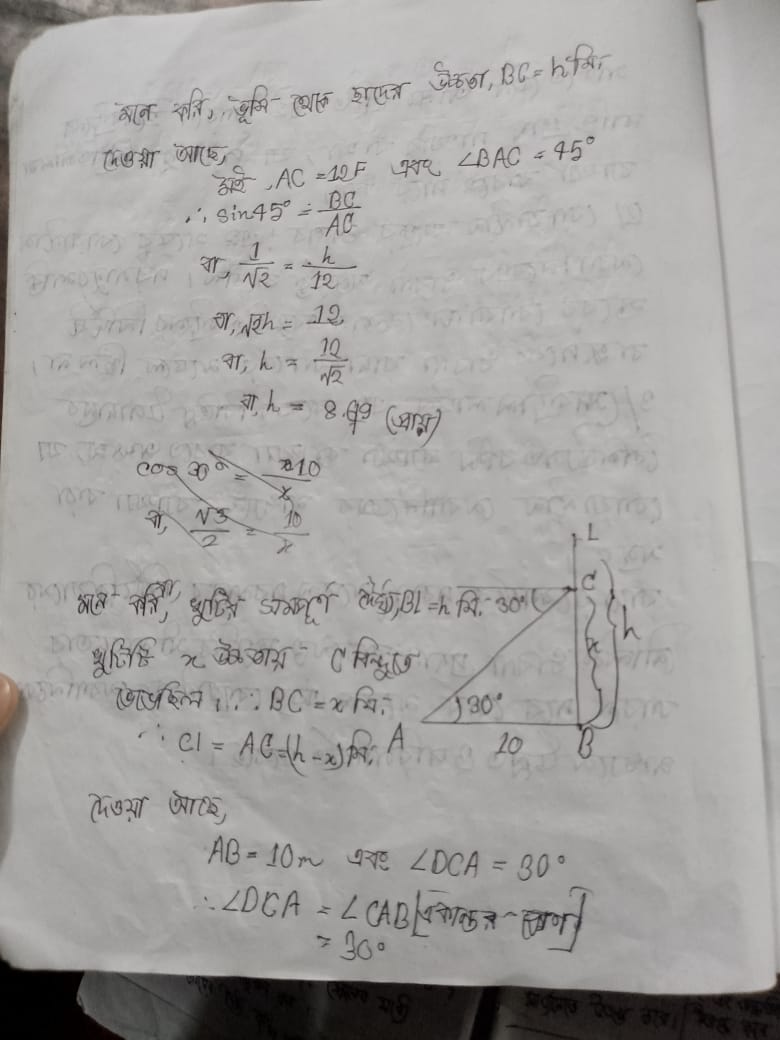 মনে করি, ভূমি থেকে ছাদের উচ্চতা, BC = h মি.
দেওয়া আছে,
মই, AC = 12F এবং ∠BAC = 45°
∴ sin45° = BC/AC
বা, 1/√2 = h/12
বা, √2h = 12
বা, h = 12/√2
বা, h = 8.49 (প্রায়)
cos 30° = 10/x
বা, √3/2 = 10/x
মনে করি, খুটির সম্পূর্ণ দৈর্ঘ্য, BL = h মি.
খুটিটি x উচ্চতায় C বিন্দুতে
ভেঙেছিল। ∴ BC = x মি.
∴ Cl = AC = (h-x) মি.
L
C
30°
x
h
30°
A
10
B
দেওয়া আছে,
AB = 10m এবং ∠DCA = 30°
∴ ∠DCA = ∠CAB [একান্তর কোণ]
= 30°